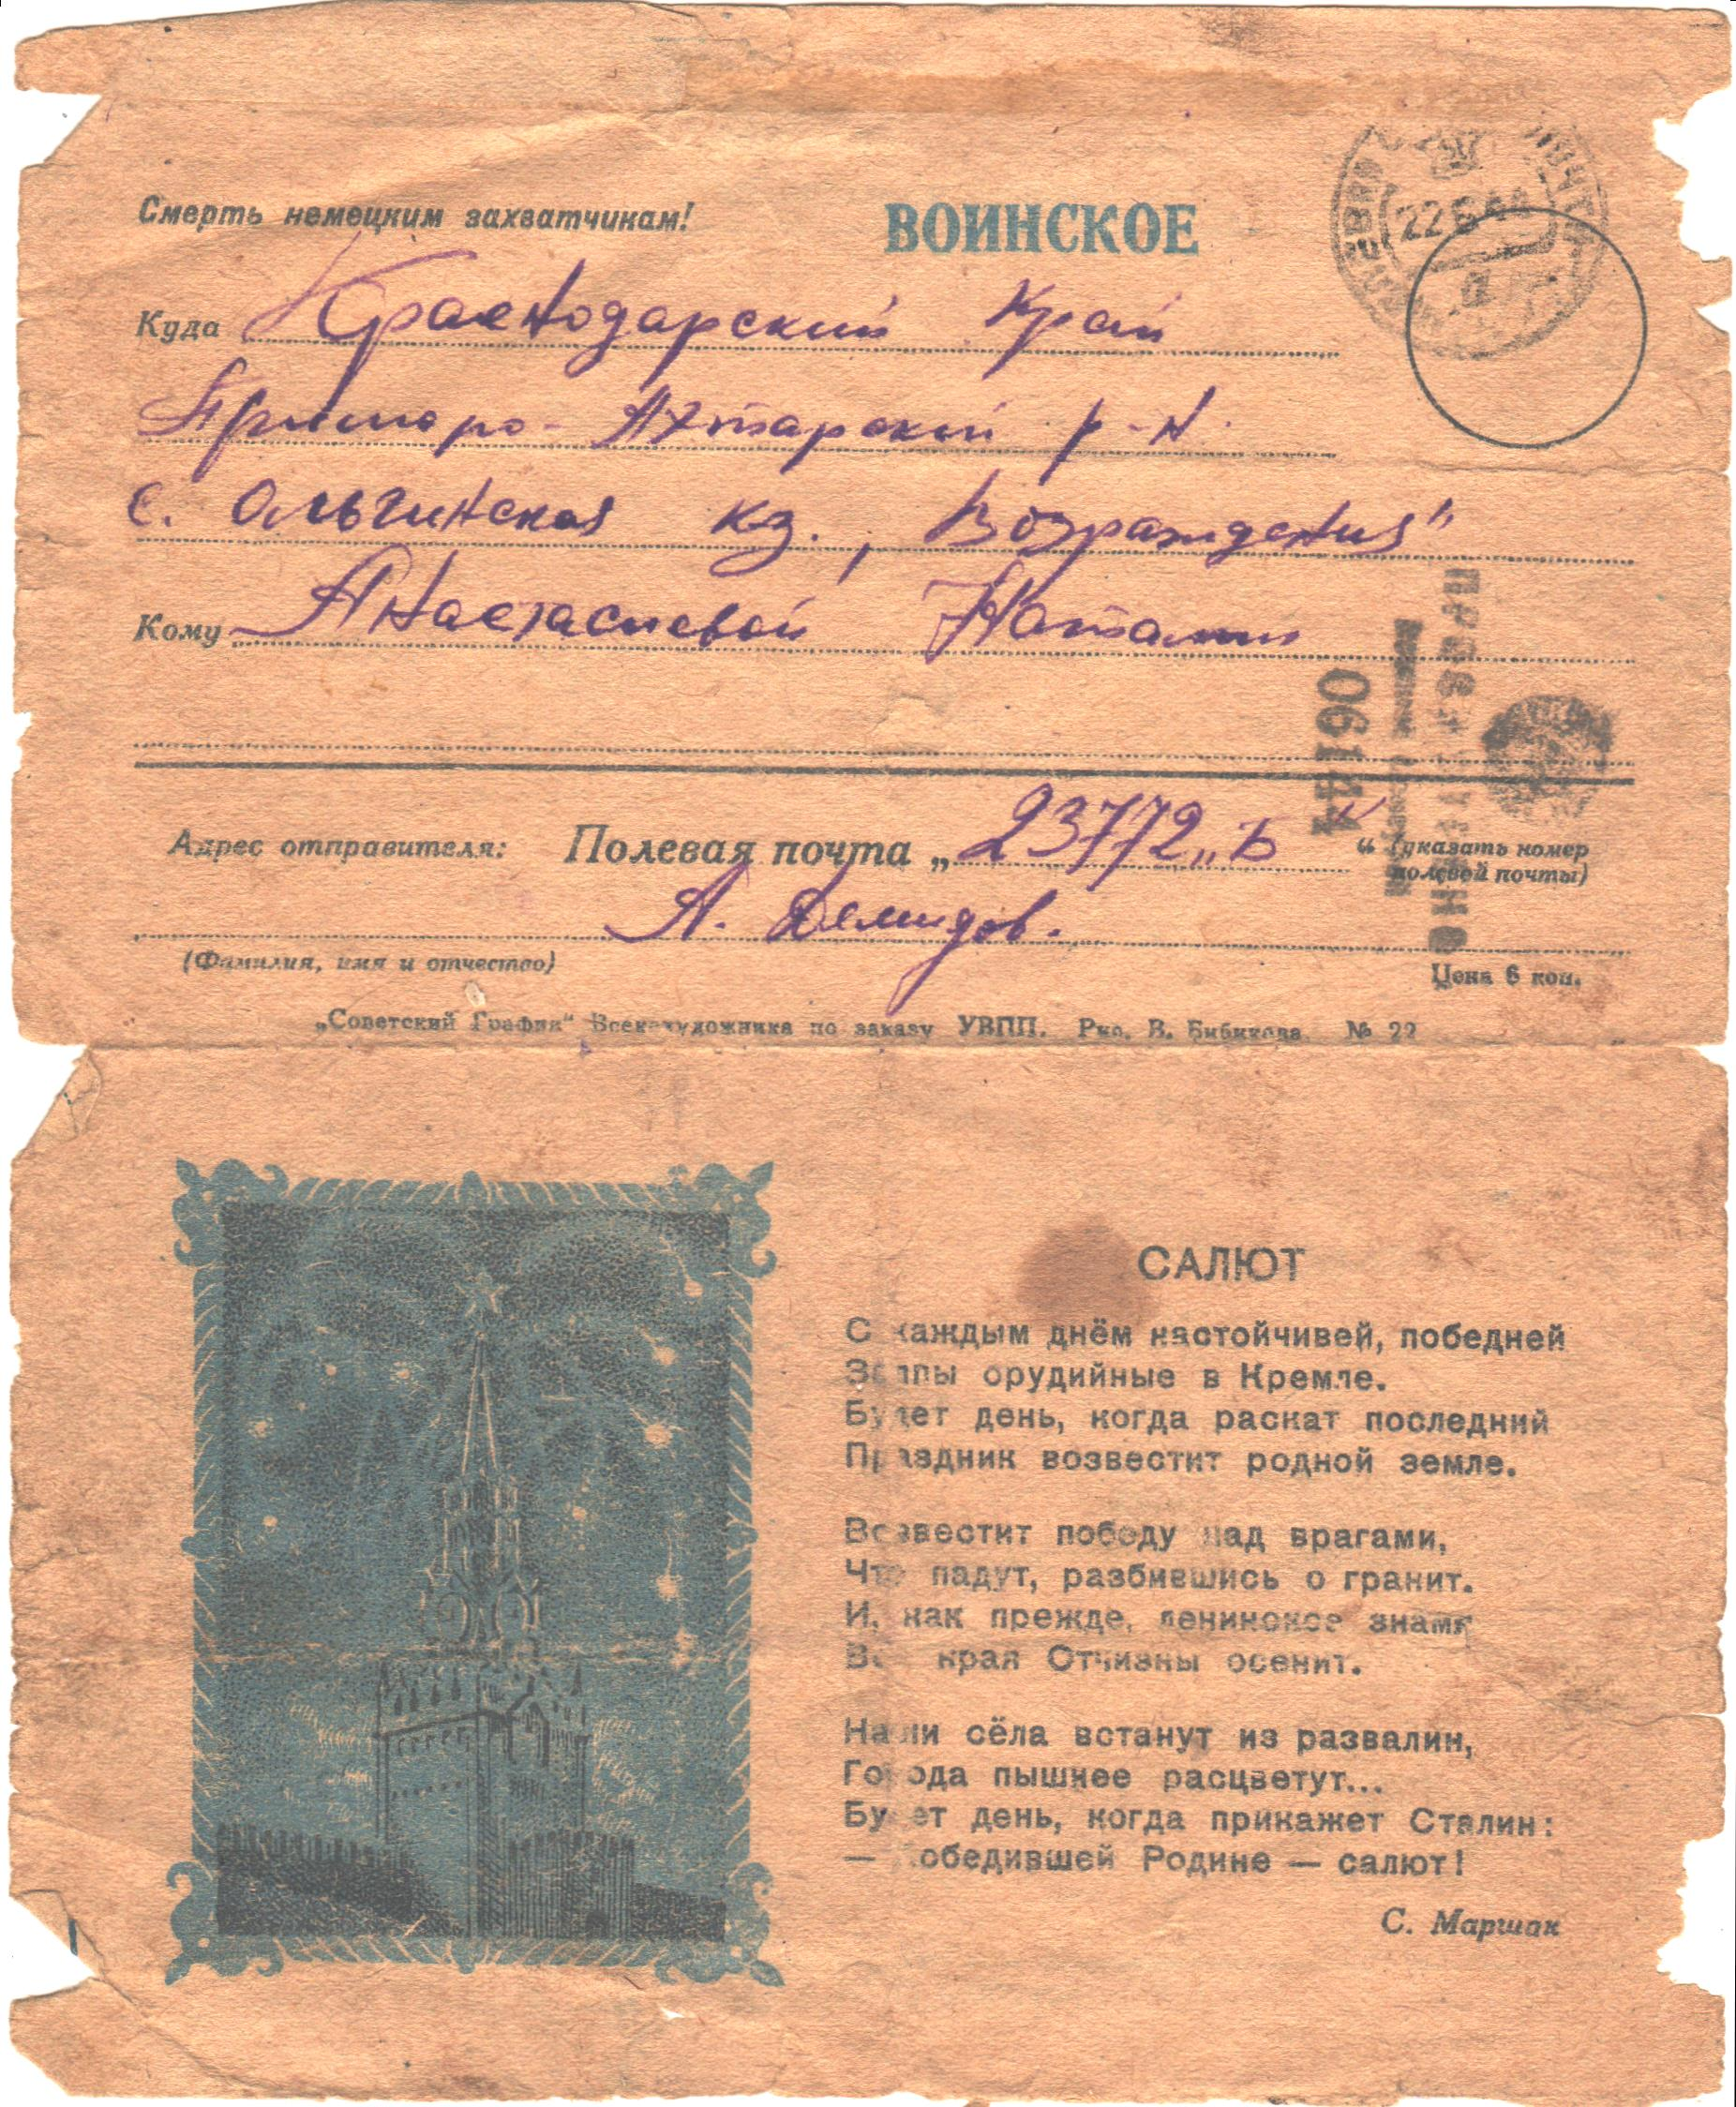 Смерть немецким захватчикам!
ВОИНСКОЕ
22 6 44
Куда Краснодарский Край
Приморо-Ахтарский р-н.
с. Ольгинская кз. „Возраждения"
Кому Анастасиевой Наталии
ПРОВЕРЕНО
06144
Адрес отправителя: Полевая почта „23772 „Б" “ (указать номер
полевой почты)
А. Демидов.
(Фамилия, имя и отчество)
Цена 6 коп.
„Советский График" Всекохудожника по заказу УВПП. Рис. В. Бибикова № 22
САЛЮТ
С каждым днём настойчивей, победней
Залпы орудийные в Кремле.
Будет день, когда раскат последний
Праздник возвестит родной земле.
Возвестит победу над врагами,
Что падут, разбившись о гранит.
И, как прежде, ленинское знамя
Все края Отчизны осенит.
Наши сёла встанут из развалин,
Города пышнее расцветут...
Будет день, когда прикажет Сталин:
— Победившей Родине — салют!
С. Маршак